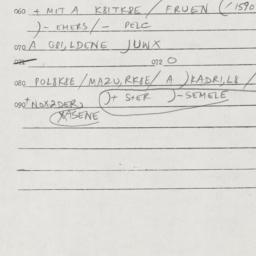 060 + MIT A K8ITK8E / FRUEN (/1590
)- EHERS / - PELC
070 A G8I,LDENE JUWX
071 072 O
080 POL8K8E / MAZU,RK8E / A )KADRI,L8 /
090 + NOX2DER, )+ S+ER )-SEMELE
XÄSENE